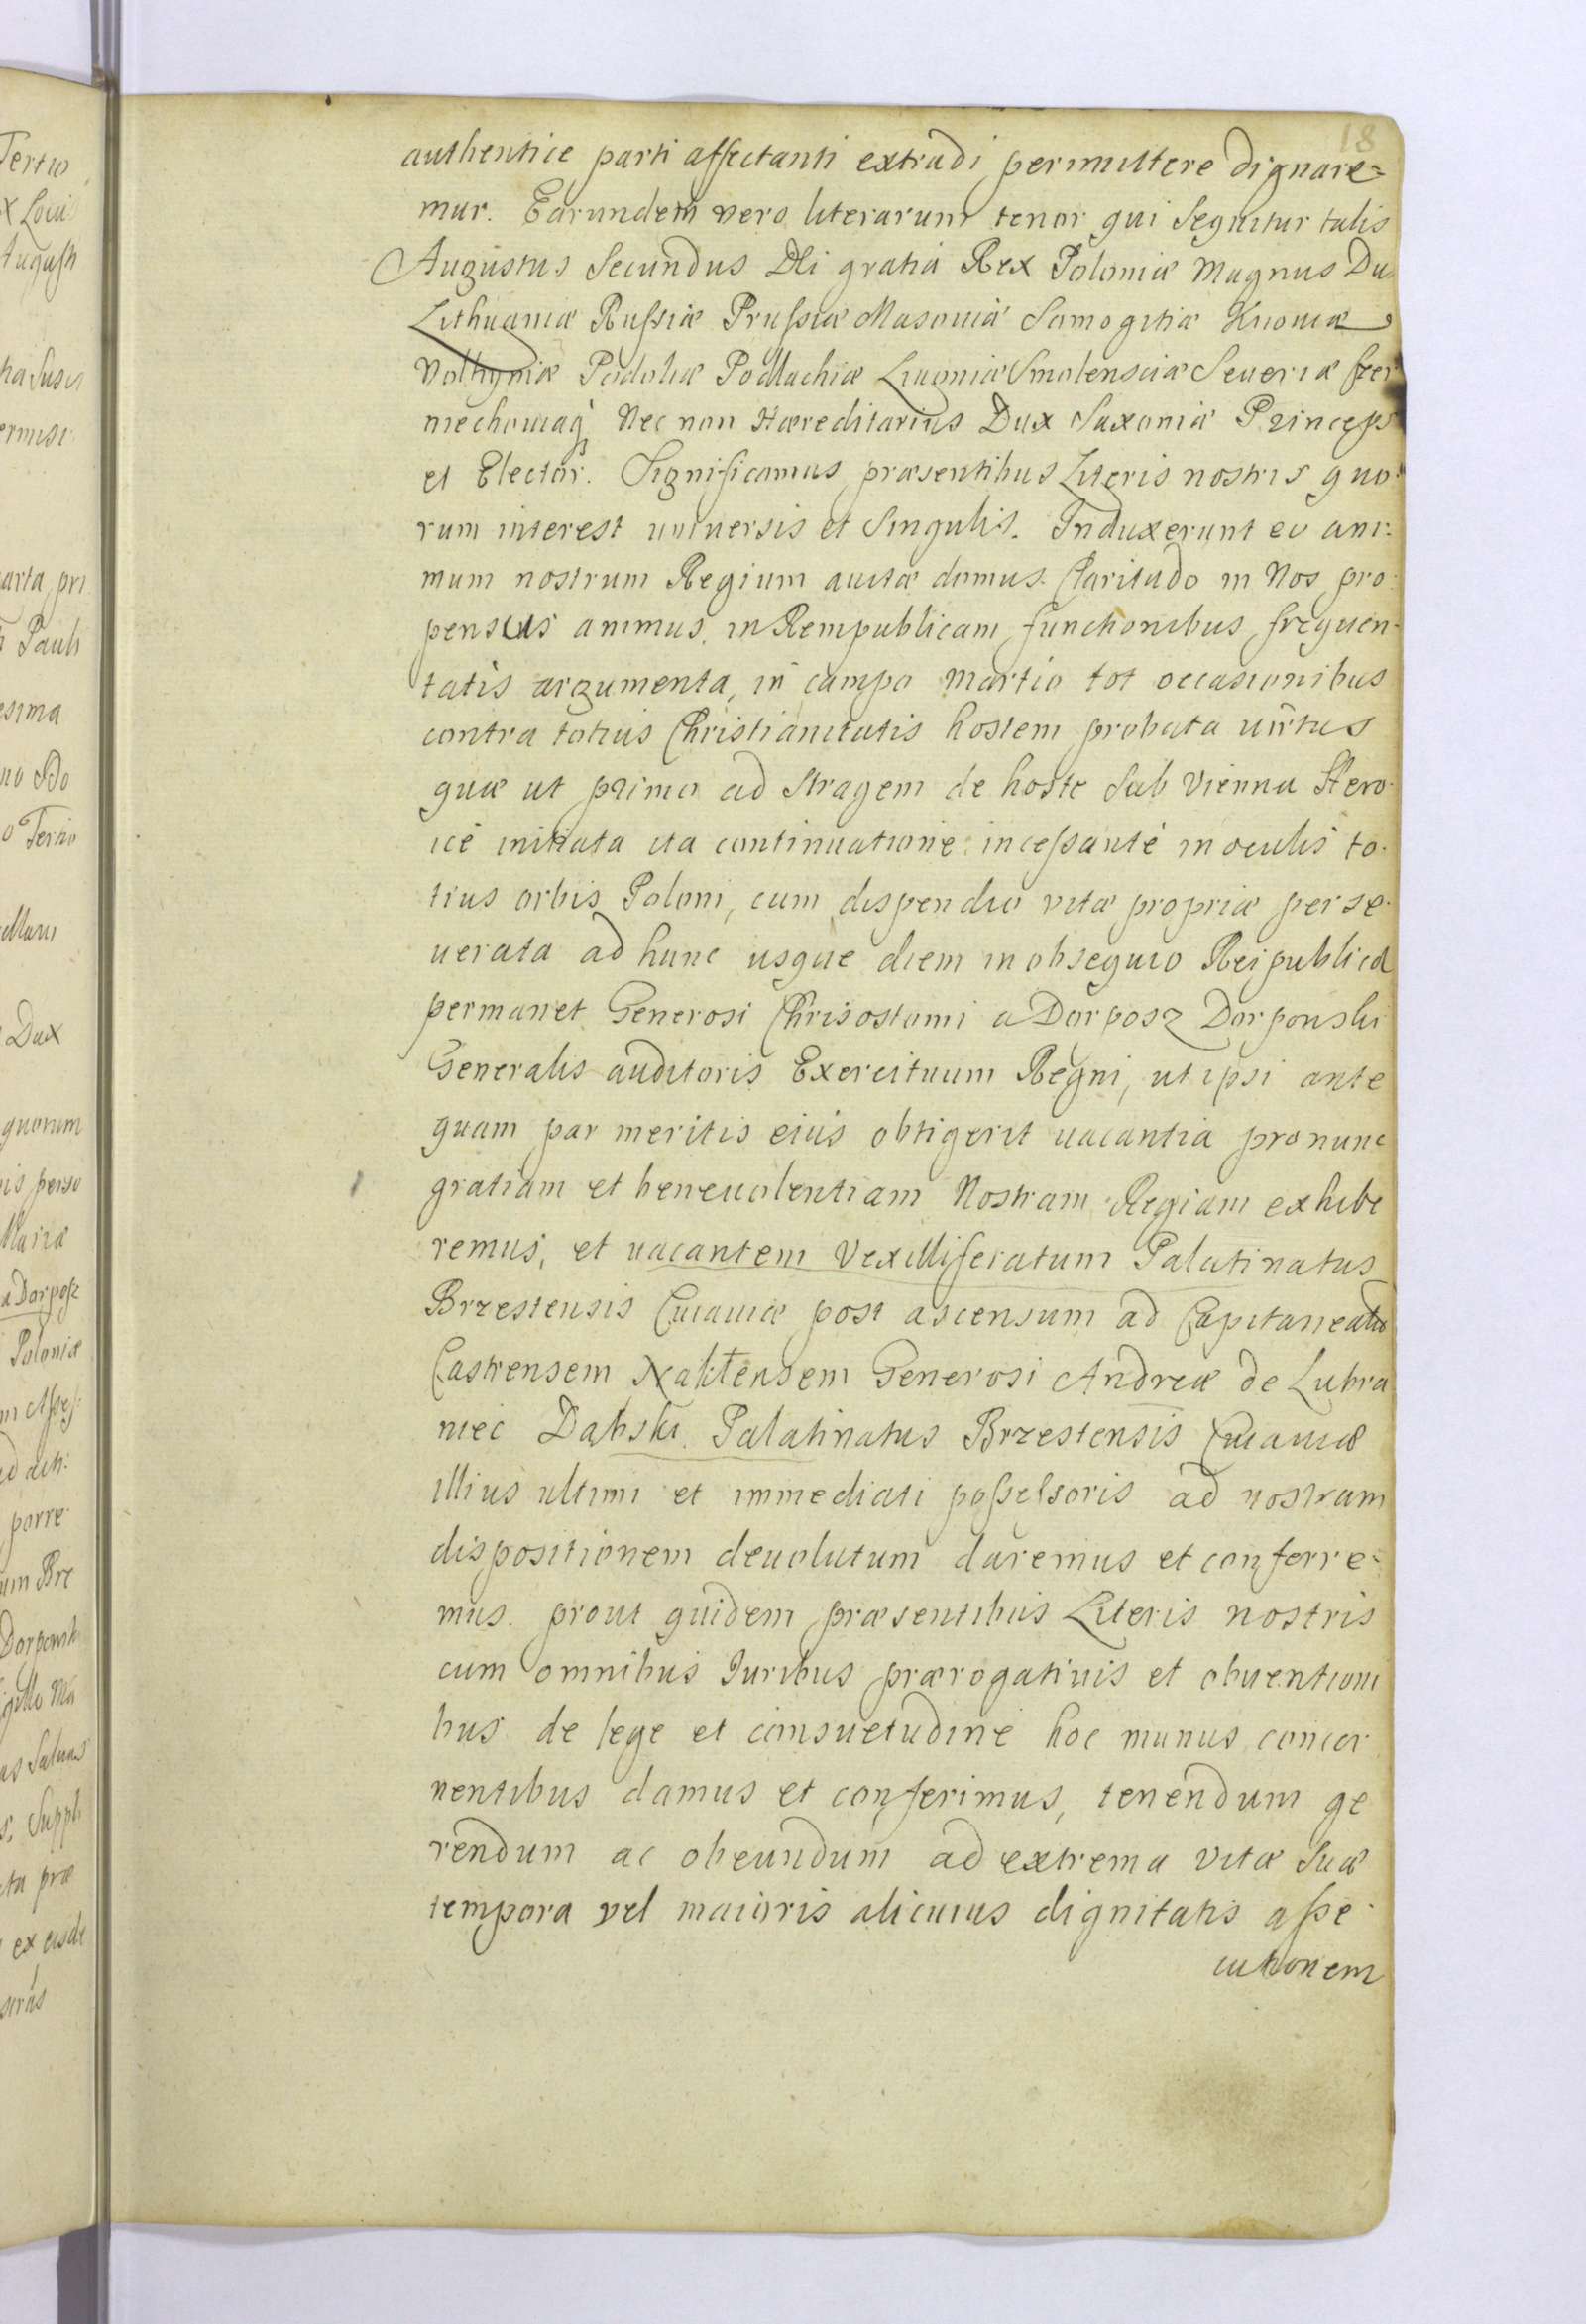 18
authentice parti affectanti extradi permittere dignare=
mur. Earundem vero literarum tenor qui sequitur talis
Augustus Secundus Dei gratia Rex Poloniæ Magnus Du
Lithuaniæ Russiæ Prussiæ Masouiæ Samogitiæ Kiiouiæ
Volhyniæ Podoliæ Podlachiæ Liuoniæ Smolensciæ Seueriæ Czer
niechouiæq Nec non Hæreditarius Dux Saxoniæ Princeps
et Elector. Significamus præsentibus Literis nostris quo
rum interest uniuersis et Singulis. Induxerunt eo ani:
mum nostrum Regium auitæ domus Claritudo in Nos pro
pensus animus in Rempublicam functionibus frequen-
tatis argumenta, in campo Martio tot occasionibus
contra totius Christianitatis hostem probata uirtus
quæ ut primo ad Stragem de hoste Sub Vienna Hero
ice initiata ita continuatione incessante in oculis to
tius orbis Poloni, cum dispendio vitæ propriæ perse
uerata ad hunc usque diem in obsequio Reipublicæ
permanet Generosi Chrisostomi a Dorposz Dorpouski
Generalis auditoris Exercituum Regni, ut ipsi ante
quam par meritis eius obtigerit uacantia pro nunc
gratiam et beneuolentiam Nostram Regiam exhibe
remus, et uacantem Vexilliferatum Palatinatus
Brzestensis Cuiauiæ post ascensum ad Capitaneatu
Castrensem Naklensem Generosi Andreæ de Lubra
niec Dąbski Palatinatus Brzestensis Cuiauiæ
illius ultimi et immediati possessoris ad nostram
dispositionem deuolutum daremus et conferre=
mus. prout quidem præsentibus Literis nostris
cum omnibus Iuribus prærogatiuis et obuentioni
bus de lege et consuetudine hoc munus concer
nentibus damus et conferimus, tenendum ge
rendum ac obeundum ad extrema vitæ Suæ
tempora vel maioris alicuius dignitatis asse
cutionem